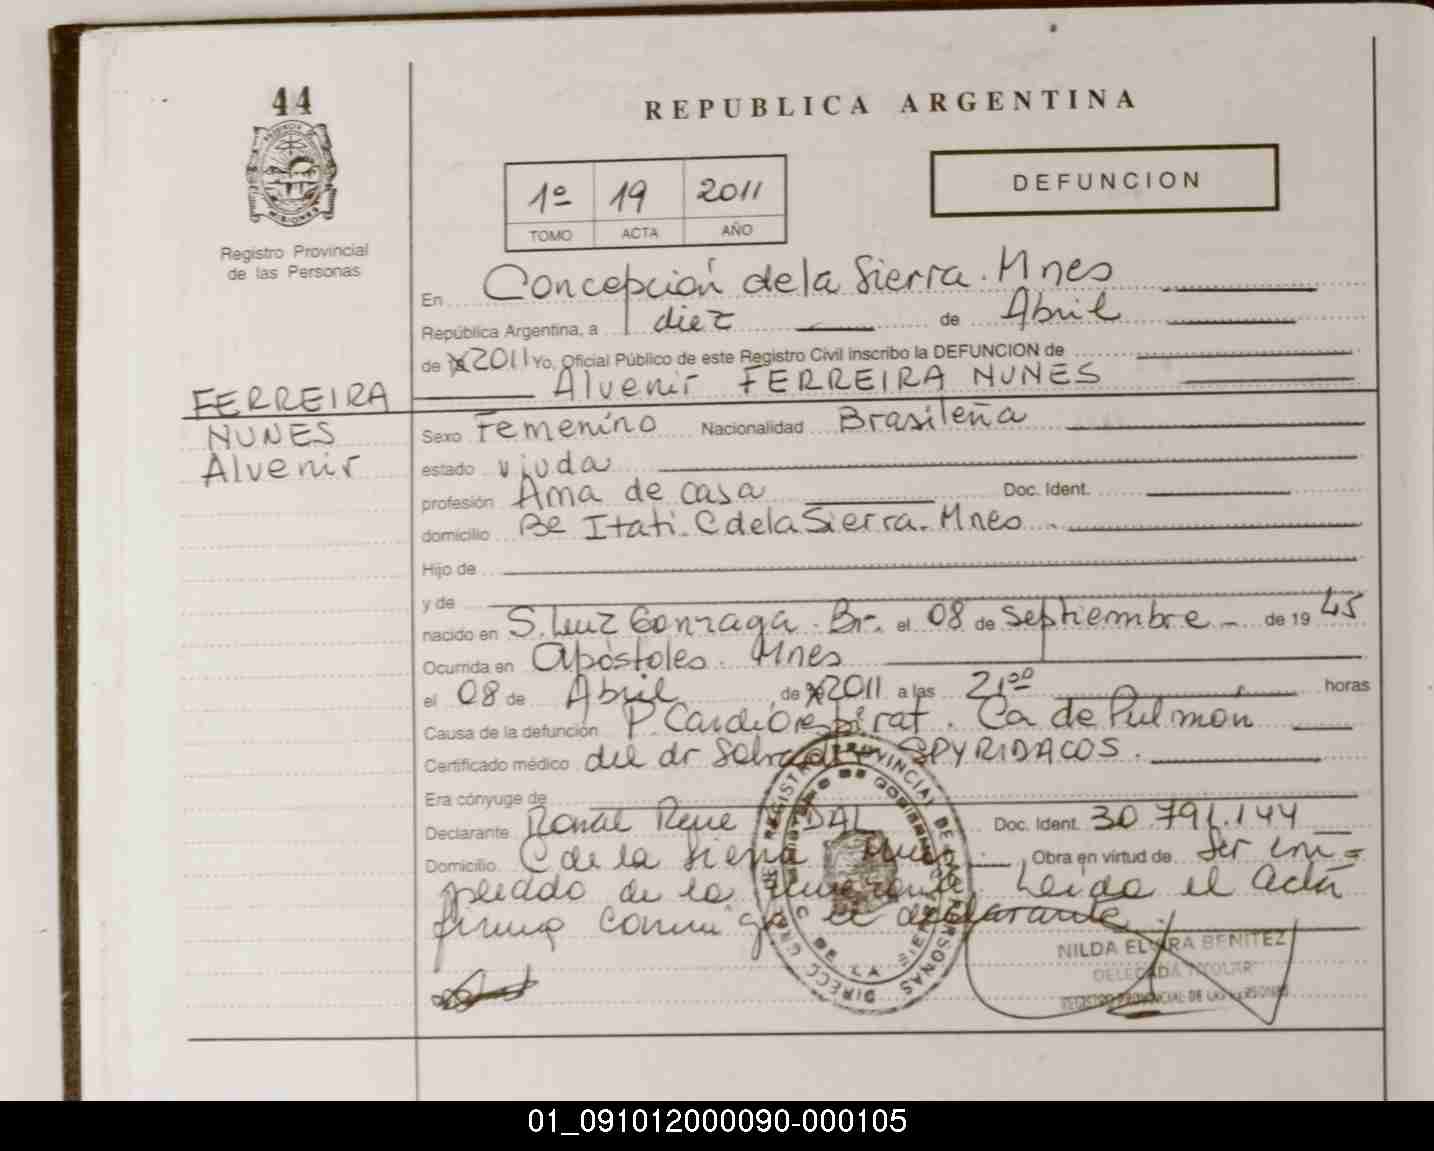 44
REPUBLICA ARGENTINA
1º 19 2011
TOMO ACTA AÑO
DEFUNCION
Registro Provincial
de las Personas
En Concepción de la Sierra. Mnes
República Argentina, a diez de Abril
de 2011 Yo, Oficial Público de este Registro Civil inscribo la DEFUNCION de
Alvenir FERREIRA NUNES
FERREIRA
NUNES
Alvenir
Sexo Femenino Nacionalidad Brasileña
estado viuda
profesión Ama de casa Doc. Ident.
domicilio Bº Itati. C de la Sierra. Mnes
Hijo de
y de
nacido en S. Luiz Gonzaga. Br. el 08 de septiembre de 19 45
Ocurrida en Apóstoles. Mnes
el 08 de Abril de 2011 a las 21ºº horas
Causa de la defunción P. Cardiorespirat. Ca de Pulmón
Certificado médico del dr Salvador SPYRIDACOS.
Era cónyuge de
Declarante Ronal Rene DAL Doc. Ident. 30.791.144
Domicilio C de la Sierra Mnes Obra en virtud de Ser em=
pleado de la Leida el Acta
firma conmigo el declarante
NILDA ELVIRA BENITEZ
DELEGADA TITULAR
REGISTRO PROVINCIAL DE LAS PERSONAS
DIRECC. GRAL. DE REGISTRO PROVINCIAL DE PERSONAS
MINISTERIO DE GOBIERNO
C. DE LA SIERRA
01_091012000090-000105